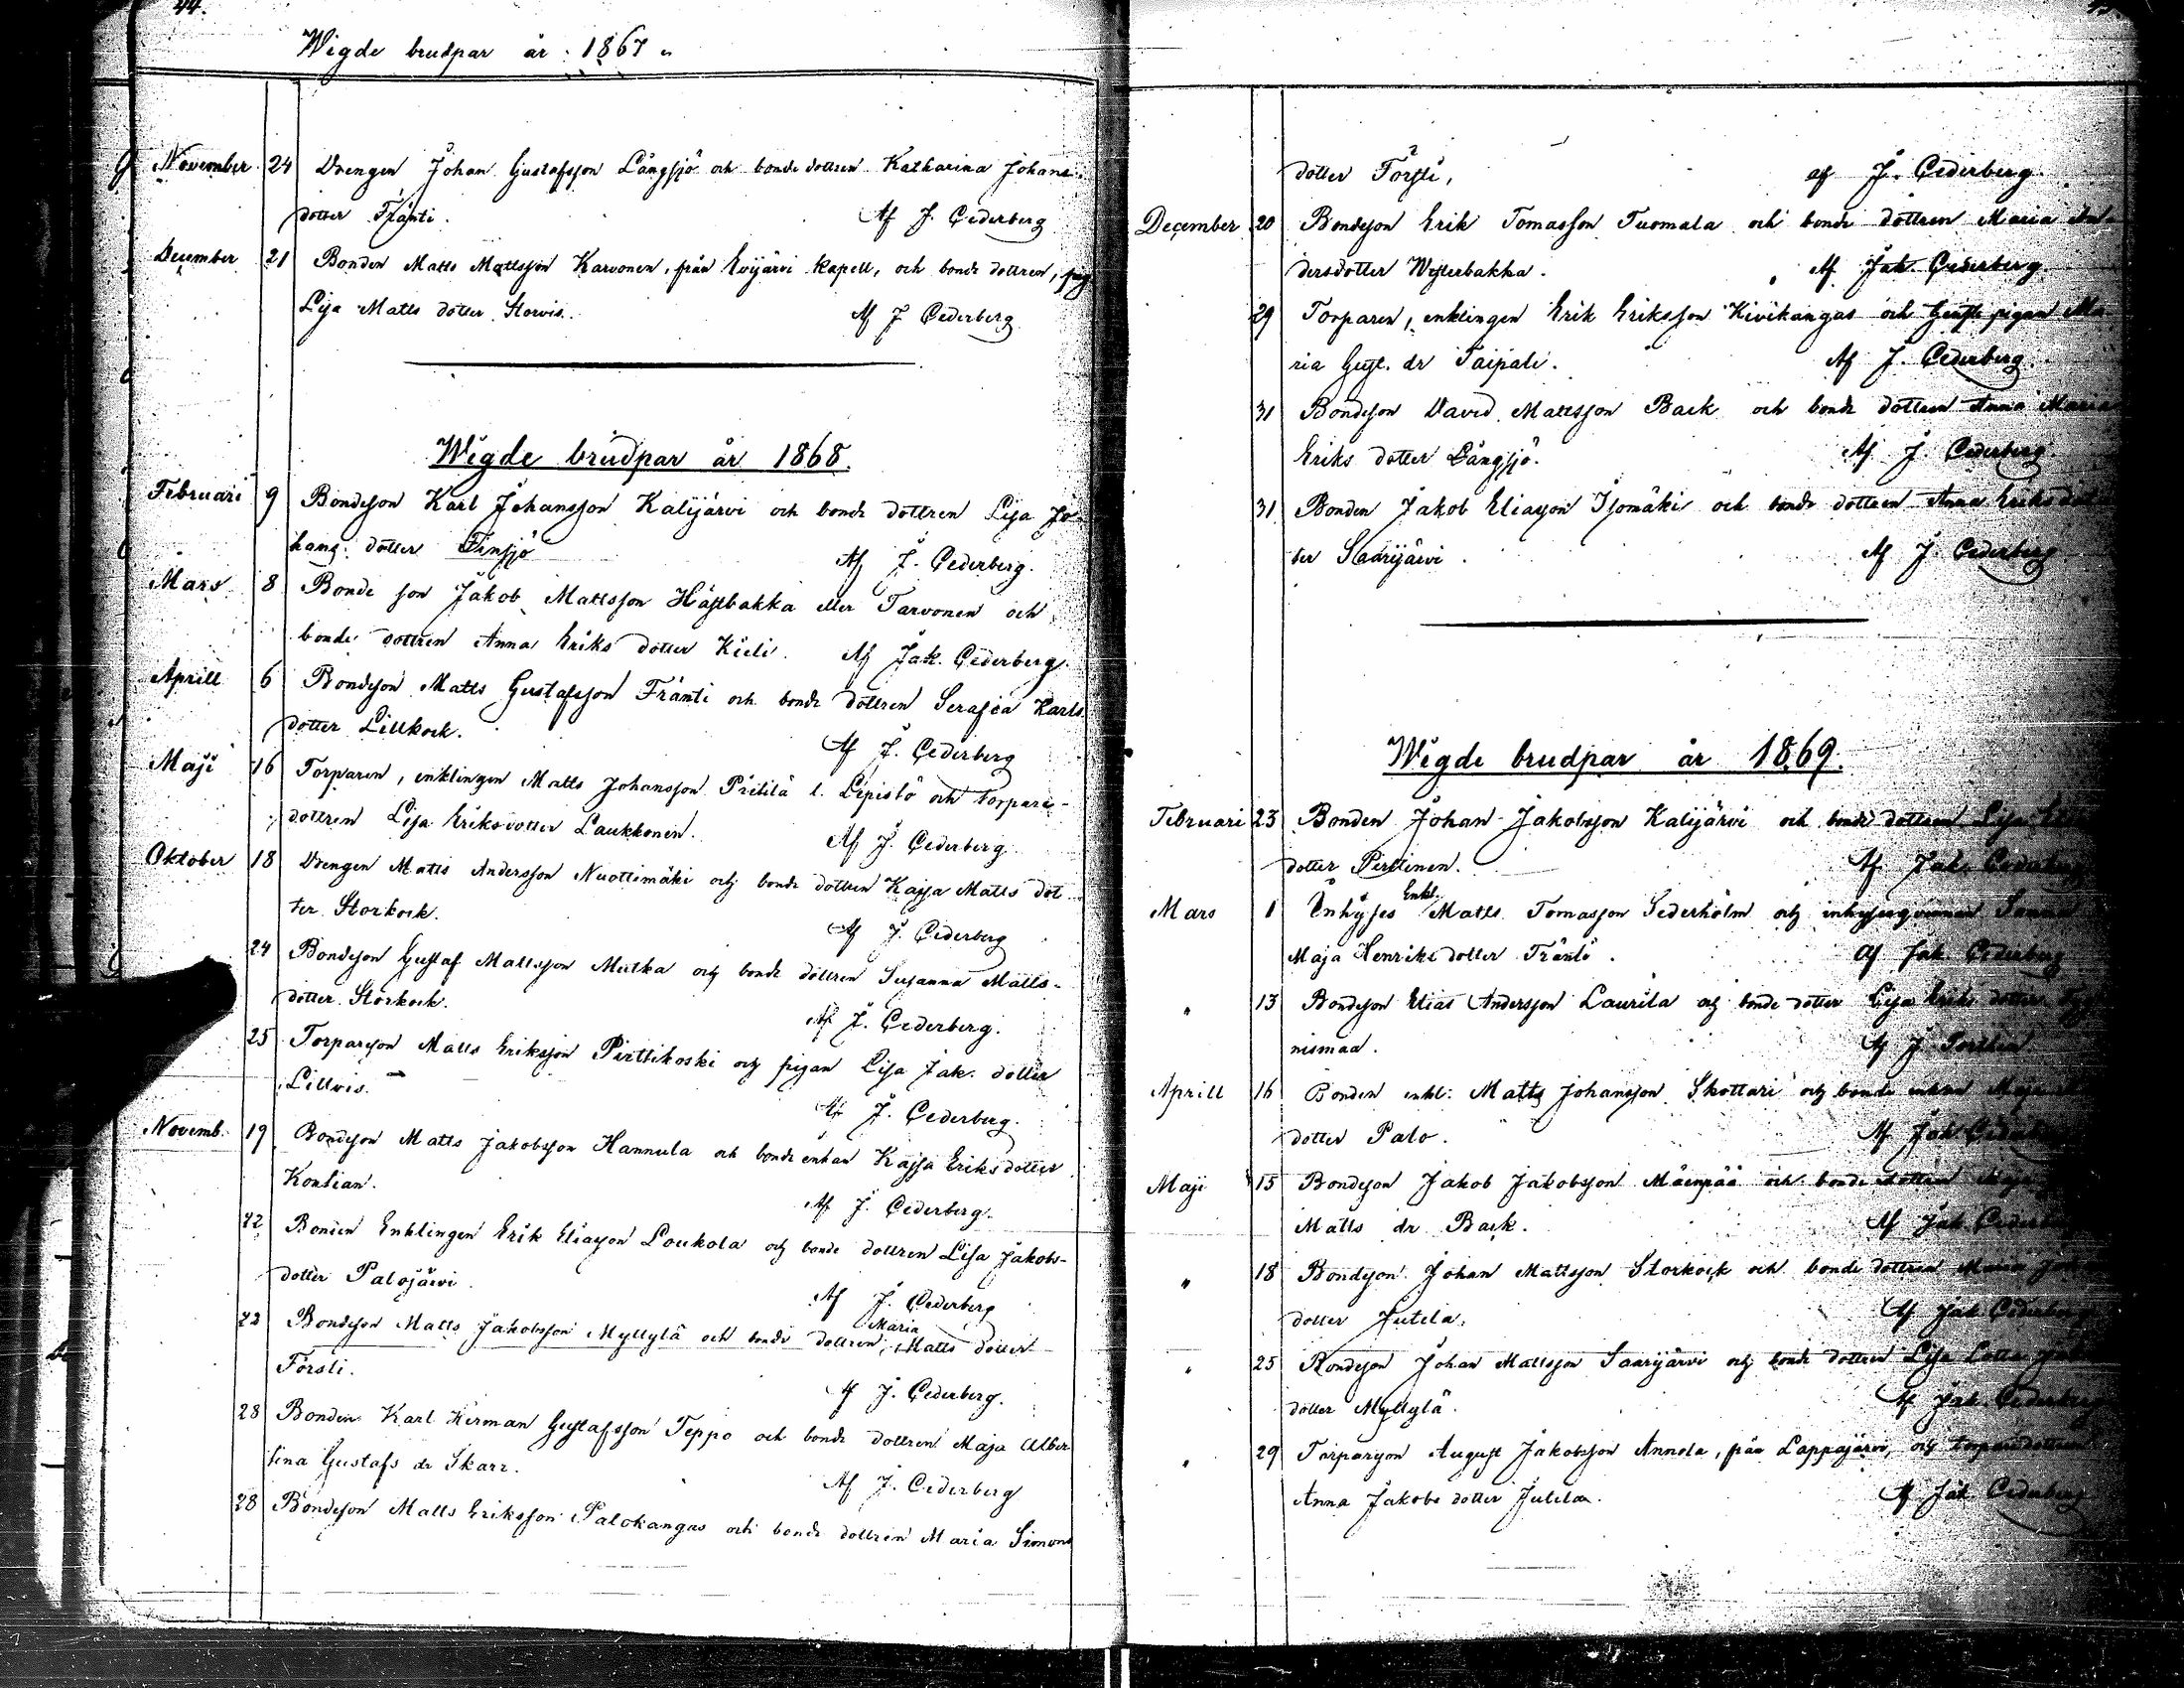 44.
Wigde brudpar år 1867
November 24 Drengen Johan Gustafsson Långsjö och bonde dottren Katharina Johans
dotter Fränti. Af J. Cederberg
December 21 Bonden Matts Mattsson Karvonen, från Evijärvi Kapell, och bonde dottren, pig
Lisa Matts dotter Storvis. Af J Cederberg
Wigde brudpar år 1868.
Februari 9 Bondeson Karl Johansson Kalijärvi och bonde dottren Lisa Jo-
hans dotter Finsjö Af J. Cederberg.
Mars 8 Bonde son Jakob Mattsson Hästbakka eller Tarvonen och
bonde dottren Anna Eriks dotter Kieli. Af Jak. Cederberg.
Aprill 6 Bondeson Matts Gustafsson Fränti och bonde dottren Serafia Karls
dotter Lillkock. Af J. Cederberg
Maji 16 Torparen, enklingen Matts Johansson Prittilä l. Lepistö och torpare-
dottren Lisa Eriksdotter Laukkonen. Af J. Cederberg.
Oktober 18 Drengen Matts Andersson Nuottimäki och bonde dottren Kajsa Matts dot
ter Storkock. Af J. Cederberg
24 Bondeson Gustaf Mattsson Mutka och bonde dottren Susanna Matts-
dotter Storkock. Af J. Cederberg.
25 Torpareson Matts Eriksson Pirttikoski och pigan Lisa Jak. dotter
Lillvis. Af J. Cederberg.
Novemb. 19 Bondeson Matts Jakobsson Hannula och bonde enkan Kajsa Eriksdotter
Kontian. Af J. Cederberg.
22 Bonden Enklingen Erik Eliasson Loukola och bonde dottren Lisa Jakobs-
dotter Palojärvi. Af J. Cederberg
22 Bondeson Matts Jakobsson Myllylä och bonde dottren Maria Matts dotter
Försti. Af J. Cederberg.
28 Bonden Karl Herman Gustafsson Teppo och bonde dottren Maja Alber
tina Gustafs dr Skarz. Af J. Cederberg
28 Bondeson Matts Eriksson Palokangas och bonde dottren Maria Simons
dotter Försti, af J. Cederberg.
December 20 Bondeson Erik Tomasson Tuomala och bonde dottren Maria An-
dersdotter Westerbakka. Af Jak. Cederberg.
29 Torparen, enklingen Erik Eriksson Kivikangas och pigan Ma
ria Gust. dr Taipale. Af J. Cederberg
31 Bondeson David Mattsson Back och bonde dottren Anna Maria
Eriks dotter Långsjö. Af J. Cederberg.
31 Bonden Jakob Eliasson Isomäki och bonde dottren Anna Eriks dot
ter Saarijärvi. Af J. Cederberg
Wigde brudpar år 1869.
Februari 23 Bonden Johan Jakobsson Kalijärvi och bonde dottren Lisa
dotter Pirttinen. Af Jak. Cederberg
Mars 1 Inhyses Enkl. Matts Tomasson Sederholm och inhysesqvinnan
Maja Henriks dotter Fräntö. Af Jak. Cederberg
" 13 Bondeson Elias Andersson Laurila och bonde dotter Lisa Eriks dotter
nismaa. Af J.
Aprill 16 Bonden enkl. Matts Johansson Skottari och bonde enkan Maja
dotter Palo. Af Jak Cederberg
Maji 15 Bondeson Jakob Jakobsson Mäenpää och bonde dottren
Matts dr Back. Af Jak. Cederberg
" 18 Bondeson Johan Mattsson Storkock och bonde dottren Maria
dotter Jutila. Af Jak Cederberg
" 25 Bondeson Johan Mattsson Saarijärvi och bonde dottren Lisa Lotta
dotter Myllylä. Af Jak. Cederberg
" 29 Torpareson August Jakobsson Annola, från Lappajärvi, och torparedottren
Anna Jakobs dotter Jutila. Af Jak Cederberg